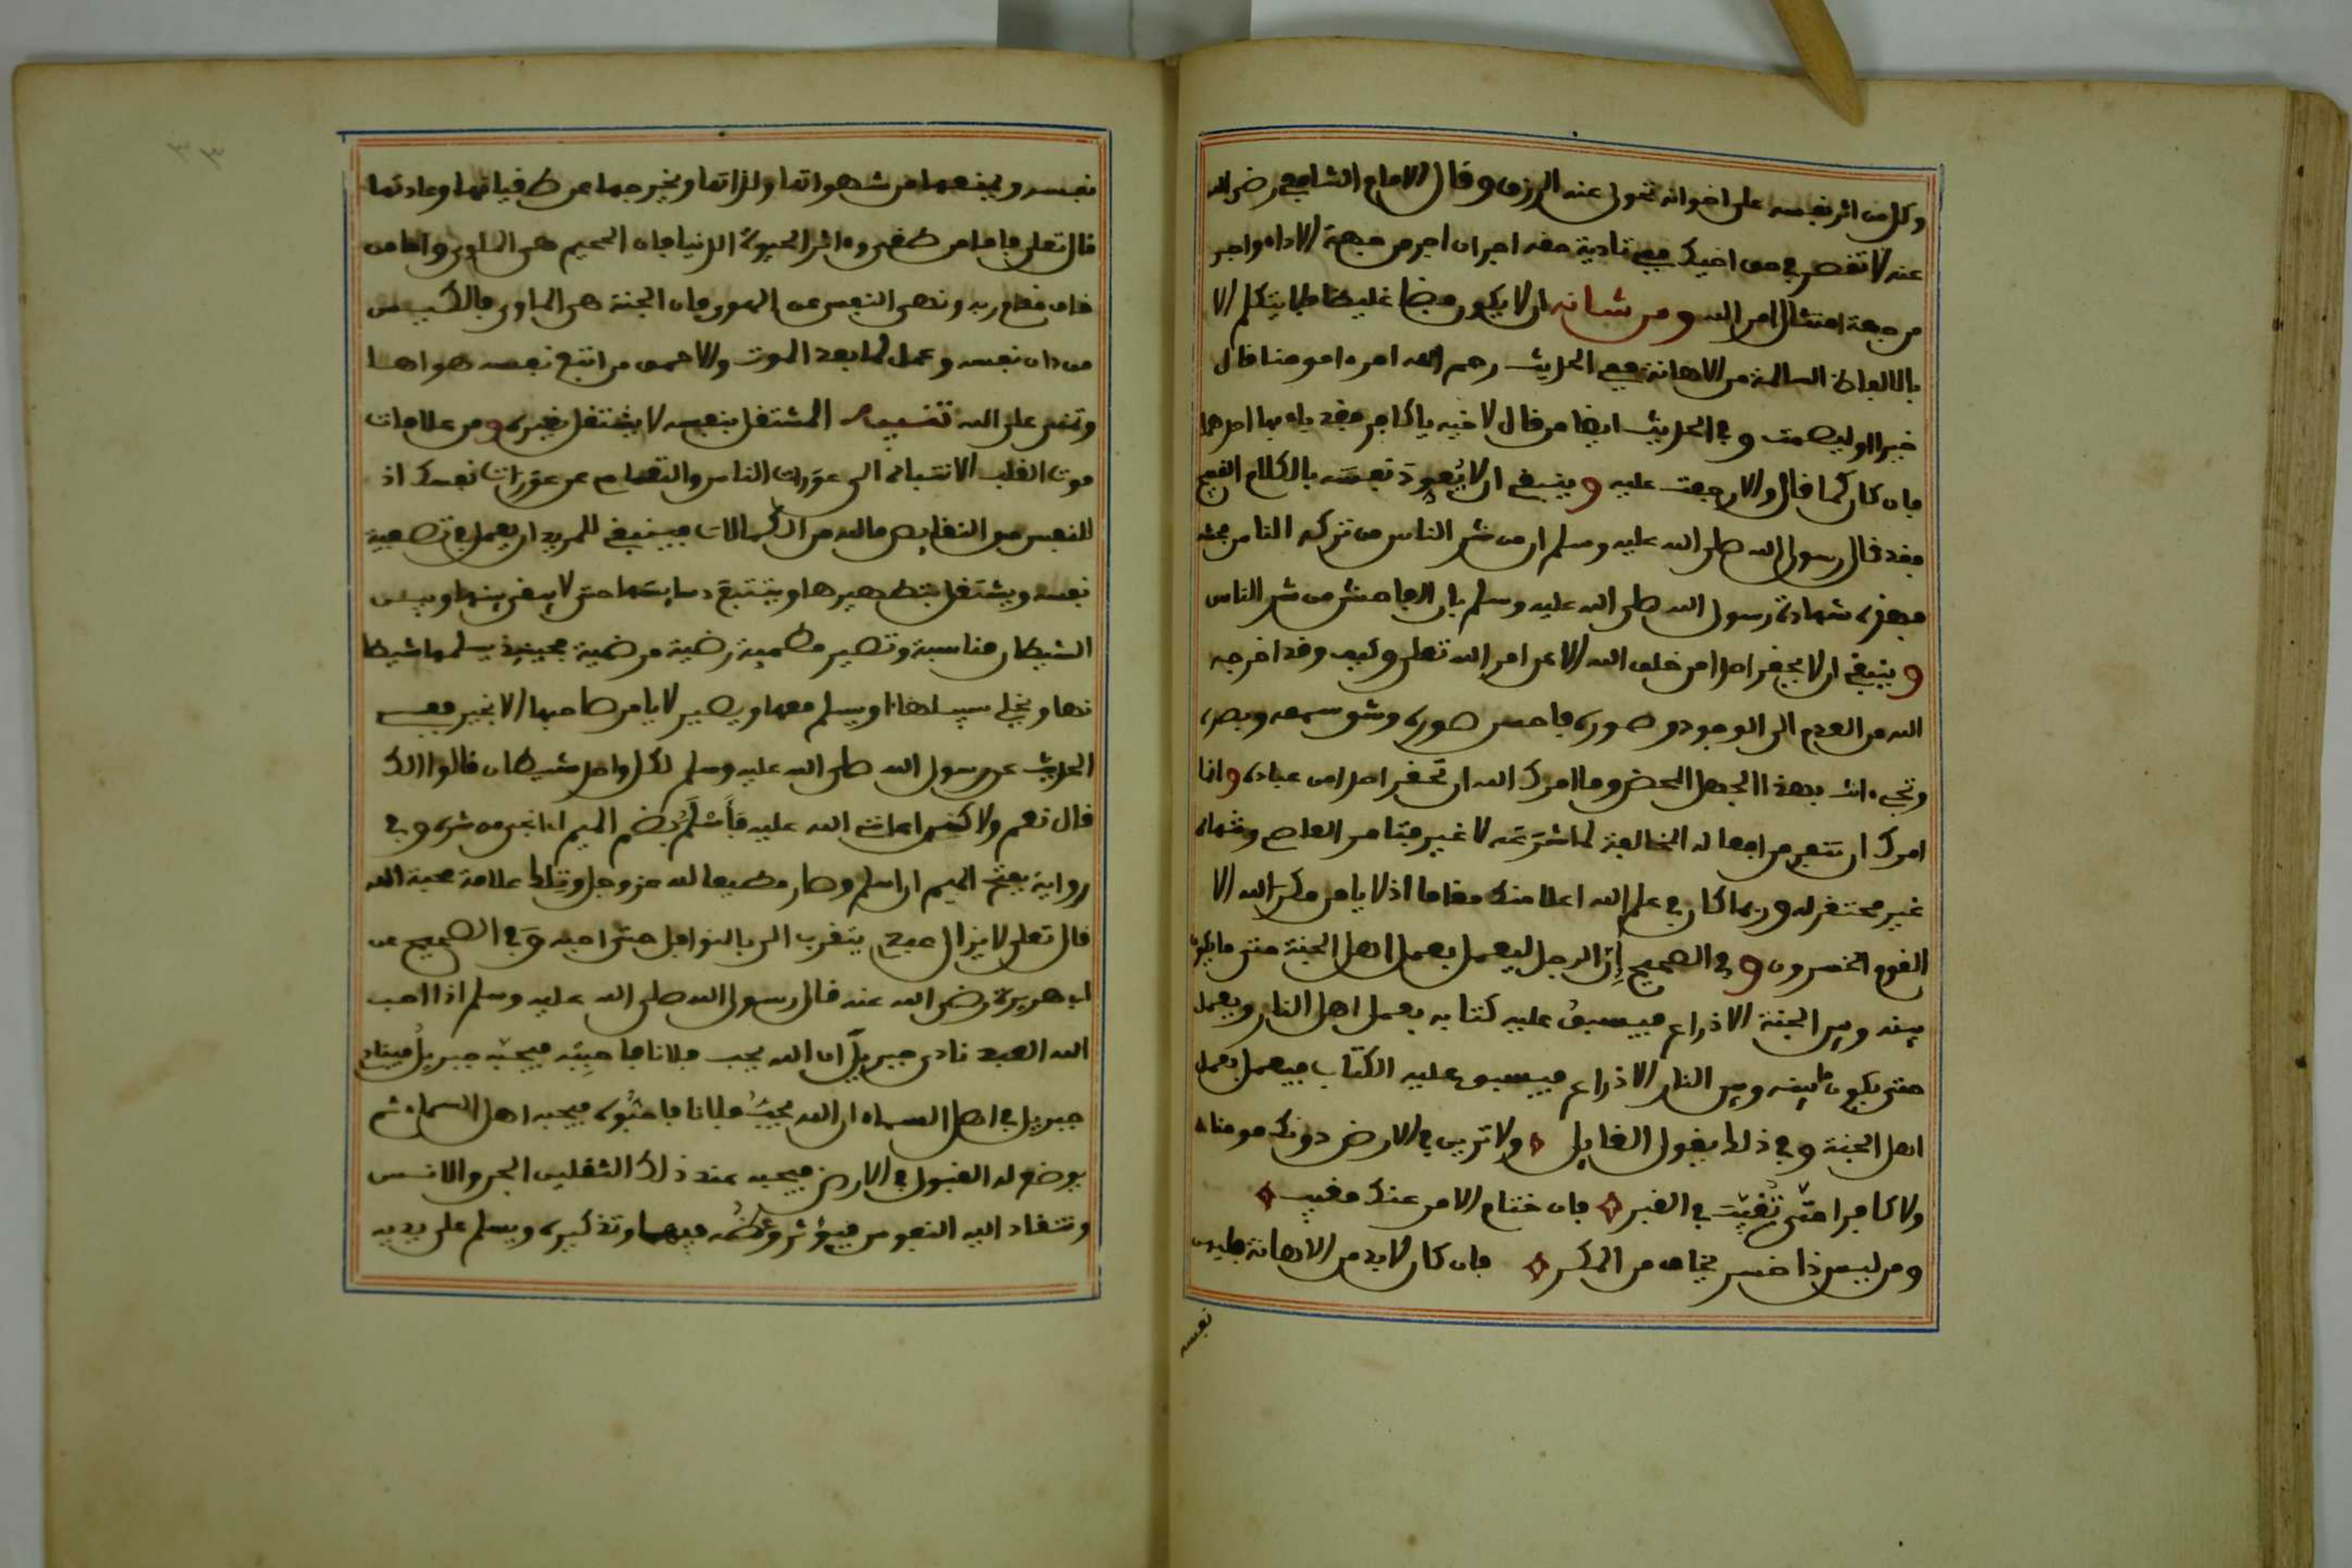 وكل من اثر نفسه على اخوانه تحول عنه الرزق وقال الامام الشافعي رضي الله
عنه لا تقصر في حق اخيك ففي تادية حقه اجران اجر من جهة الاداء واجر
من جهة امتثال امر الله ومن شانه ان لا يكون فظا غليظا فلا يتكلم الا
بالالفاظ السالمة من الاهانة ففي الحديث رحم الله امرءا مومنا قال
خيرا او ليصمت وفي الحديث ايضا من قال لاخيه يا كافر فقد باء بها احدهما
فان كان كما قال والا رجعت عليه وينبغي ان لا يُعوِدَ نفسَه بالكلام القبيح
فقد قال رسول الله صلى الله عليه وسلم ان من شر الناس من تركه الناس فحشه
فهذه شهادة رسول الله صلى الله عليه وسلم بان الفاحش من شر الناس
وينبغي ان لا يحقر احدا من خلق الله الا عن امر الله تعلى وكيف وقد اخرجه
الله من العدم الى الوجود وصوره فاحسن صوره وشق سمعه وبصره
وتجيء انت بهذا الجهل المحض وما امرك الله ان تحقر احدا من عباده وانما
امرك ان تنفر من افعاله المخالفة لما شرَعَه لا غير فتامر العاصي وتنهاه
غير محتقر له وربما كان في علم الله اعلا منك مقاما اذ لا يامن مكر الله الا
القوم الخسرون وفي الصحيح إن الرجل ليعمل بعمل اهل الجنة حتى ما يكون
بينه وبين الجنة الا ذراع فيسبق عليه كتابه بعمل اهل النار ويعمل
حتى يكون ما بينه وبين النار الا ذراع فيسبق عليه الكتاب فيعمل بعمل
اهل الجنة وفي ذلك يقول القايل ولا ترين في الارض دونك مومنا
ولا كافرا حتّى تُغَيَّبَ في القبر فان ختام الامر عنك مغيب
ومن ليس ذا خسر يخاف من المكر فان كان لا بد من الاهانة فليهن
نفسه
نفسه ويمنعها من شهواتها ولذاتها ويخرجها عن طغيانها وعادتها
قال تعلى فاما من طغى وءاثر الحيوة الدنيا فان الجحيم هي الماوى واما من
خاف مقام ربه ونهى النفس عن الهوى فان الجنة هي الماوى فالكيس من
من دان نفسه وعمل لما بعد الموت والاحمق من اتبع نفسه هواها
وتمنى على الله تنبيه المشتغل بنفسه لا يشتغل بغيره ومن علامات
موت القلب الانتباه الى عورات الناس والتعام عن عورات نفسك اذ
للنفس من النقايص ما لله من الكمالات فينبغي للمريد ان يعمل في تصفية
نفسه ويشتغل بتطهيرها ويتتبع دسايسها حتى لا يبقى بينها وبين
الشيطان مناسبة وتصير مطمينة رضية مرضية فحينيذ يسلمها شيطا
نها ويخلي سبيلها او يسلم معها ويصير لا يامر صاحبها الا بخير ففي
الحديث عن رسول الله صلى الله عليه وسلم لكل واحد شيطان قالوا الك
قال نعم ولاكن اعانني الله عليه فأسْلَمُ بضم الميم اي انجى من شره وفي
رواية بفتح الميم اي اسلم وصار مطيعا لله عز وجل وتلك علامة محبة الله
قال تعلى لا يزال عبدي يتقرب الي بالنوافل حتى احبه وفي الصحيح عن
ابي هريرة رضي الله عنه قال رسول الله صلى الله عليه وسلم اذا احب
الله العبد نادى جبريل ان الله يحب فلانا فاحبِبْه فيحبه جبريلُ فينادي
جبريل في اهل السماء ان الله يحبُ فلانا فاحبُّوه فيحبه اهل السماء ثم
يوضع له القبول في الارض فيحبه عند ذلك الثقلين الجن والانس
وتنقاد اليه النفوس فيؤثر وعظُه فيها وتذكيره ويسلم على يديه